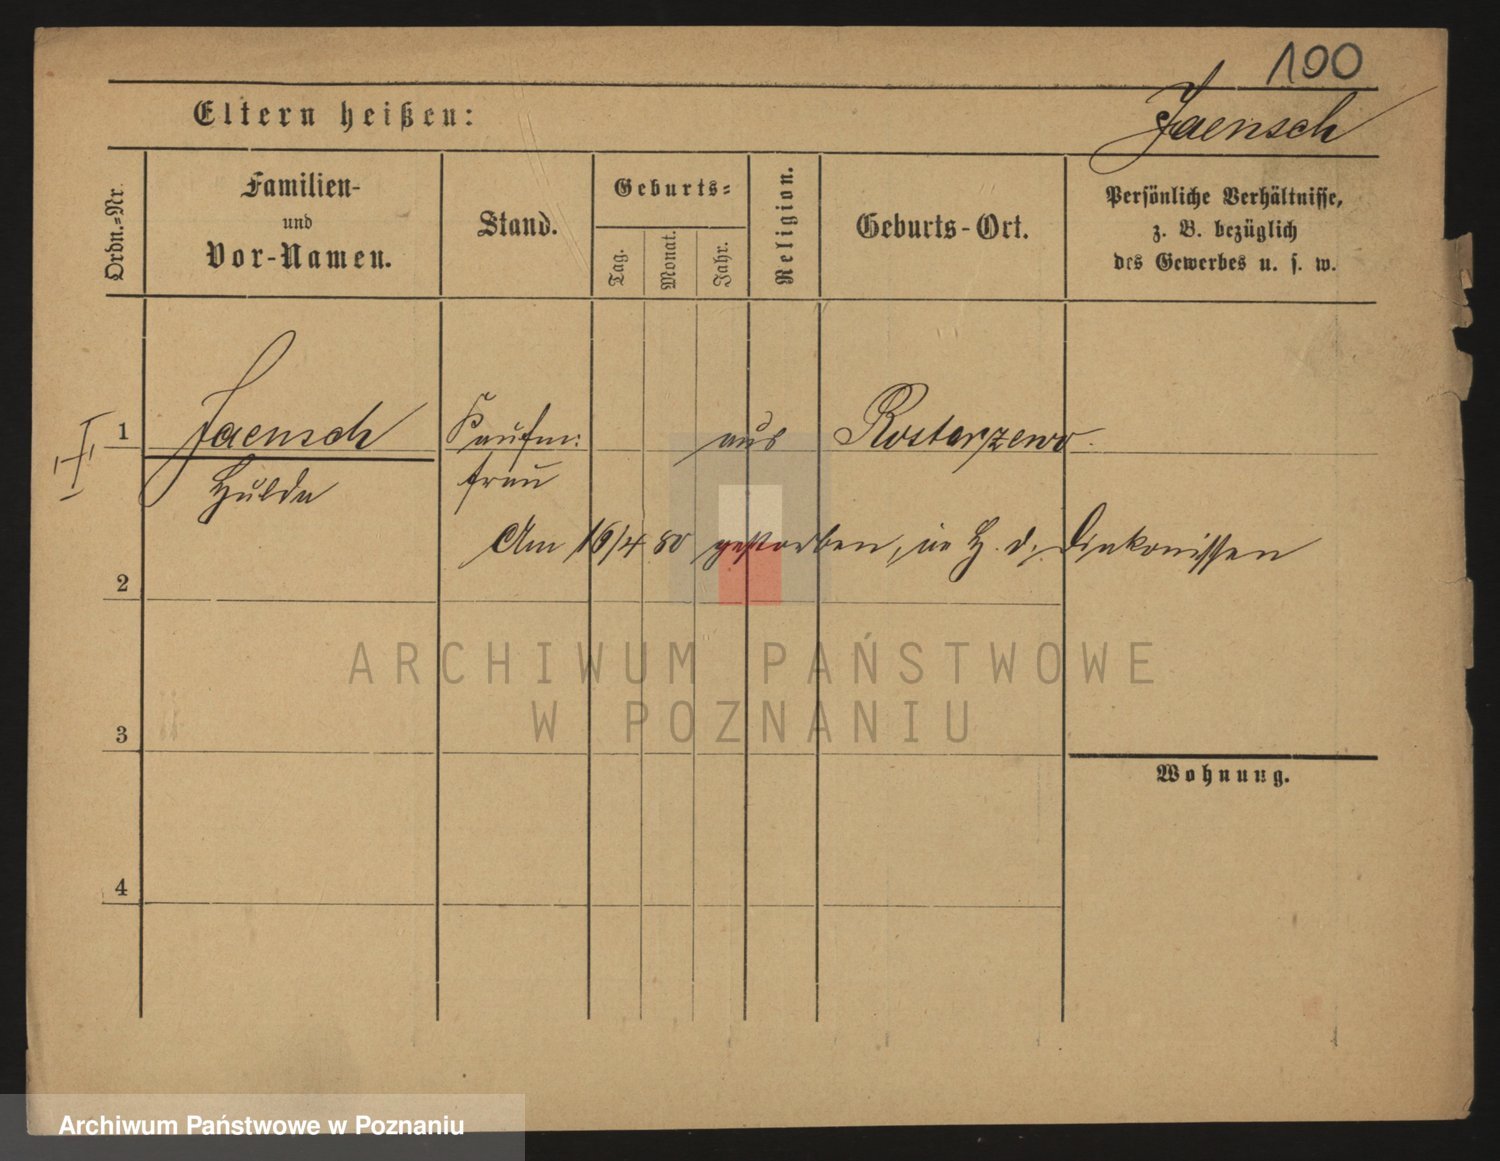 100
Jaensch
Eltern heißen:
Ordn.=Nr.
Familien-
und
Vor-Namen.
Stand.
Geburts=
Tag.
Monat.
Jahr.
Religion.
Geburts-Ort.
Persönliche Verhältnisse,
z. B. bezüglich
des Gewerbes u. s. w.
1
Jaensch
Kaufm:
aus Rostarzewo
Hulda
frau
Am 16/4 80 gestorben, in H. d. Diakonissen
2
3
4
Wohnung.
ARCHIWUM PAŃSTWOWE
W POZNANIU
Archiwum Państwowe w Poznaniu